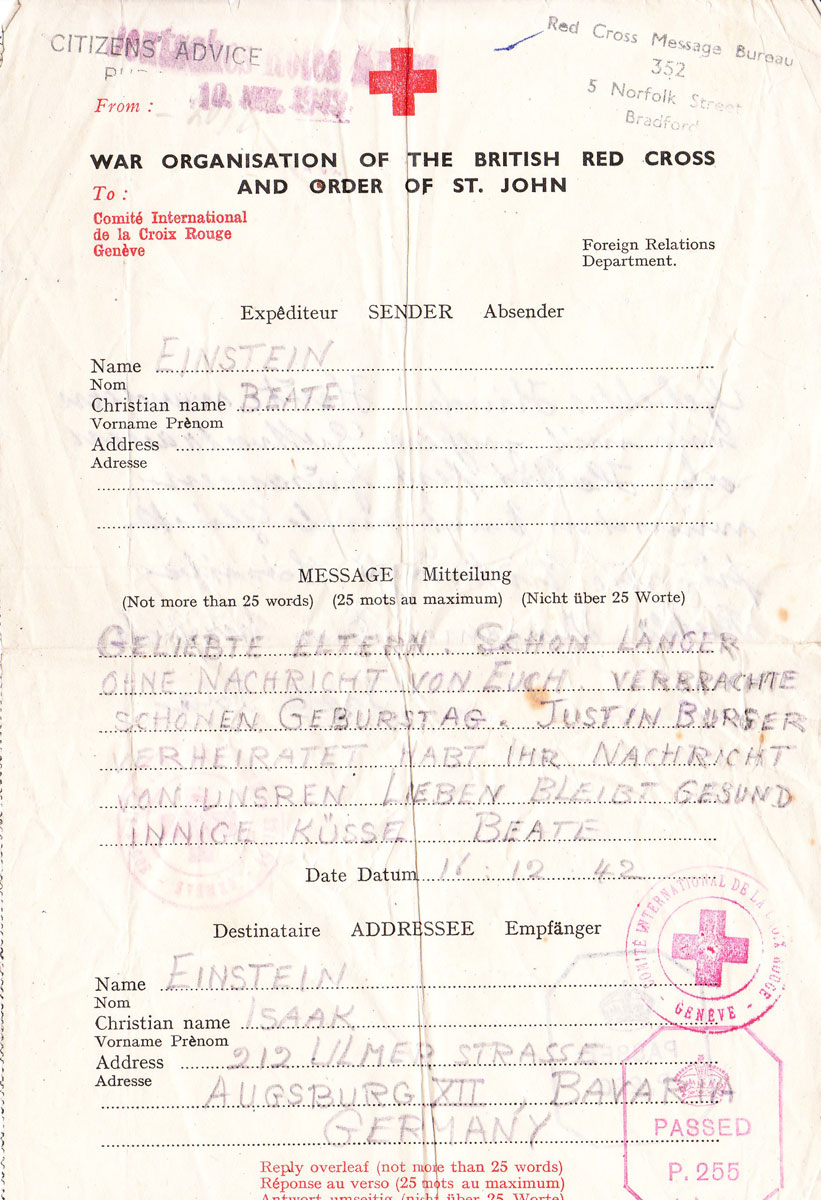 CITIZENS' ADVICE
Red Cross Message Bureau
352
5 Norfolk Street
Bradford
From :
WAR ORGANISATION OF THE BRITISH RED CROSS
AND ORDER OF ST. JOHN
To :
Comité International
de la Croix Rouge
Genève
Foreign Relations
Department.
Expêditeur SENDER Absender
Name EINSTEIN
Nom
Christian name BEATE
Vorname Prènom
Address
Adresse
MESSAGE Mitteilung
(Not more than 25 words) (25 mots au maximum) (Nicht über 25 Worte)
GELIEBTE ELTERN. SCHON LÄNGER
OHNE NACHRICHT VON EUCH. VERBRACHTE
SCHÖNEN GEBURSTAG. JUSTIN BURGER
VERHEIRATET HABT IHR NACHRICHT
VON UNSREN LIEBEN BLEIBT GESUND
INNIGE KÜSSE BEATE
Date Datum 16 12 42
Destinataire ADDRESSEE Empfänger
Name EINSTEIN
Nom
Christian name ISAAK
Vorname Prènom
Address 212 ULMER STRASSE
Adresse
AUGSBURG XII, BAVARIA
GERMANY
COMITÉ INTERNATIONAL DE LA CROIX ROUGE
- GENÈVE -
PASSED
P. 255
Reply overleaf (not more than 25 words)
Réponse au verso (25 mots au maximum)
Antwort umseitig (nicht über 25 Worte)